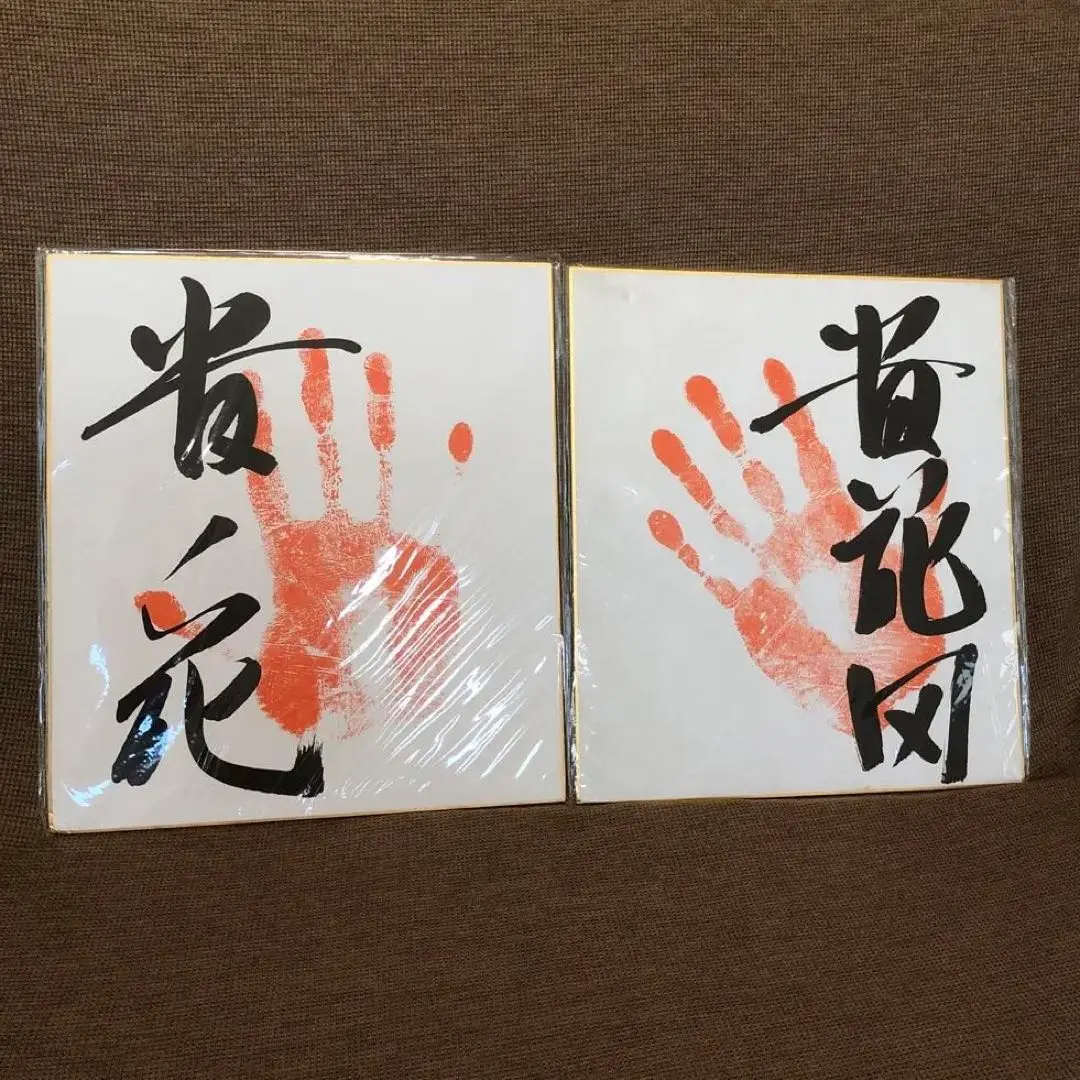 貴ノ花
貴花田